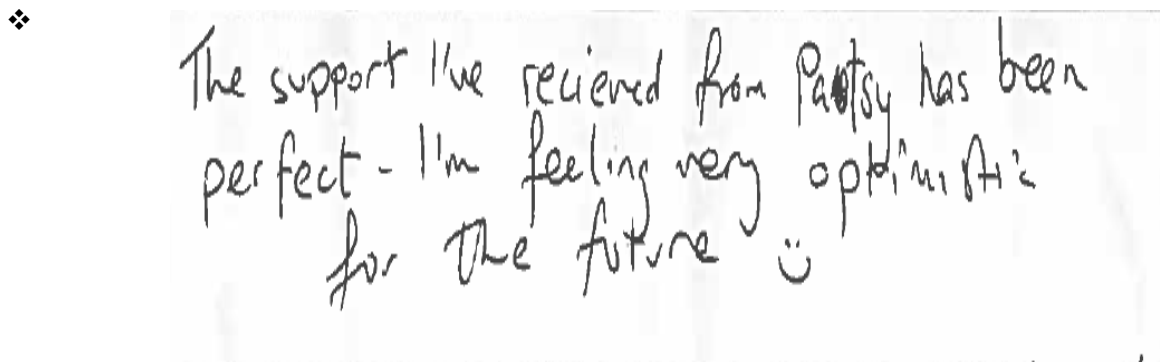 The support I've recieved from Patsy has been
perfect - I'm feeling very optimistic
for the future ü